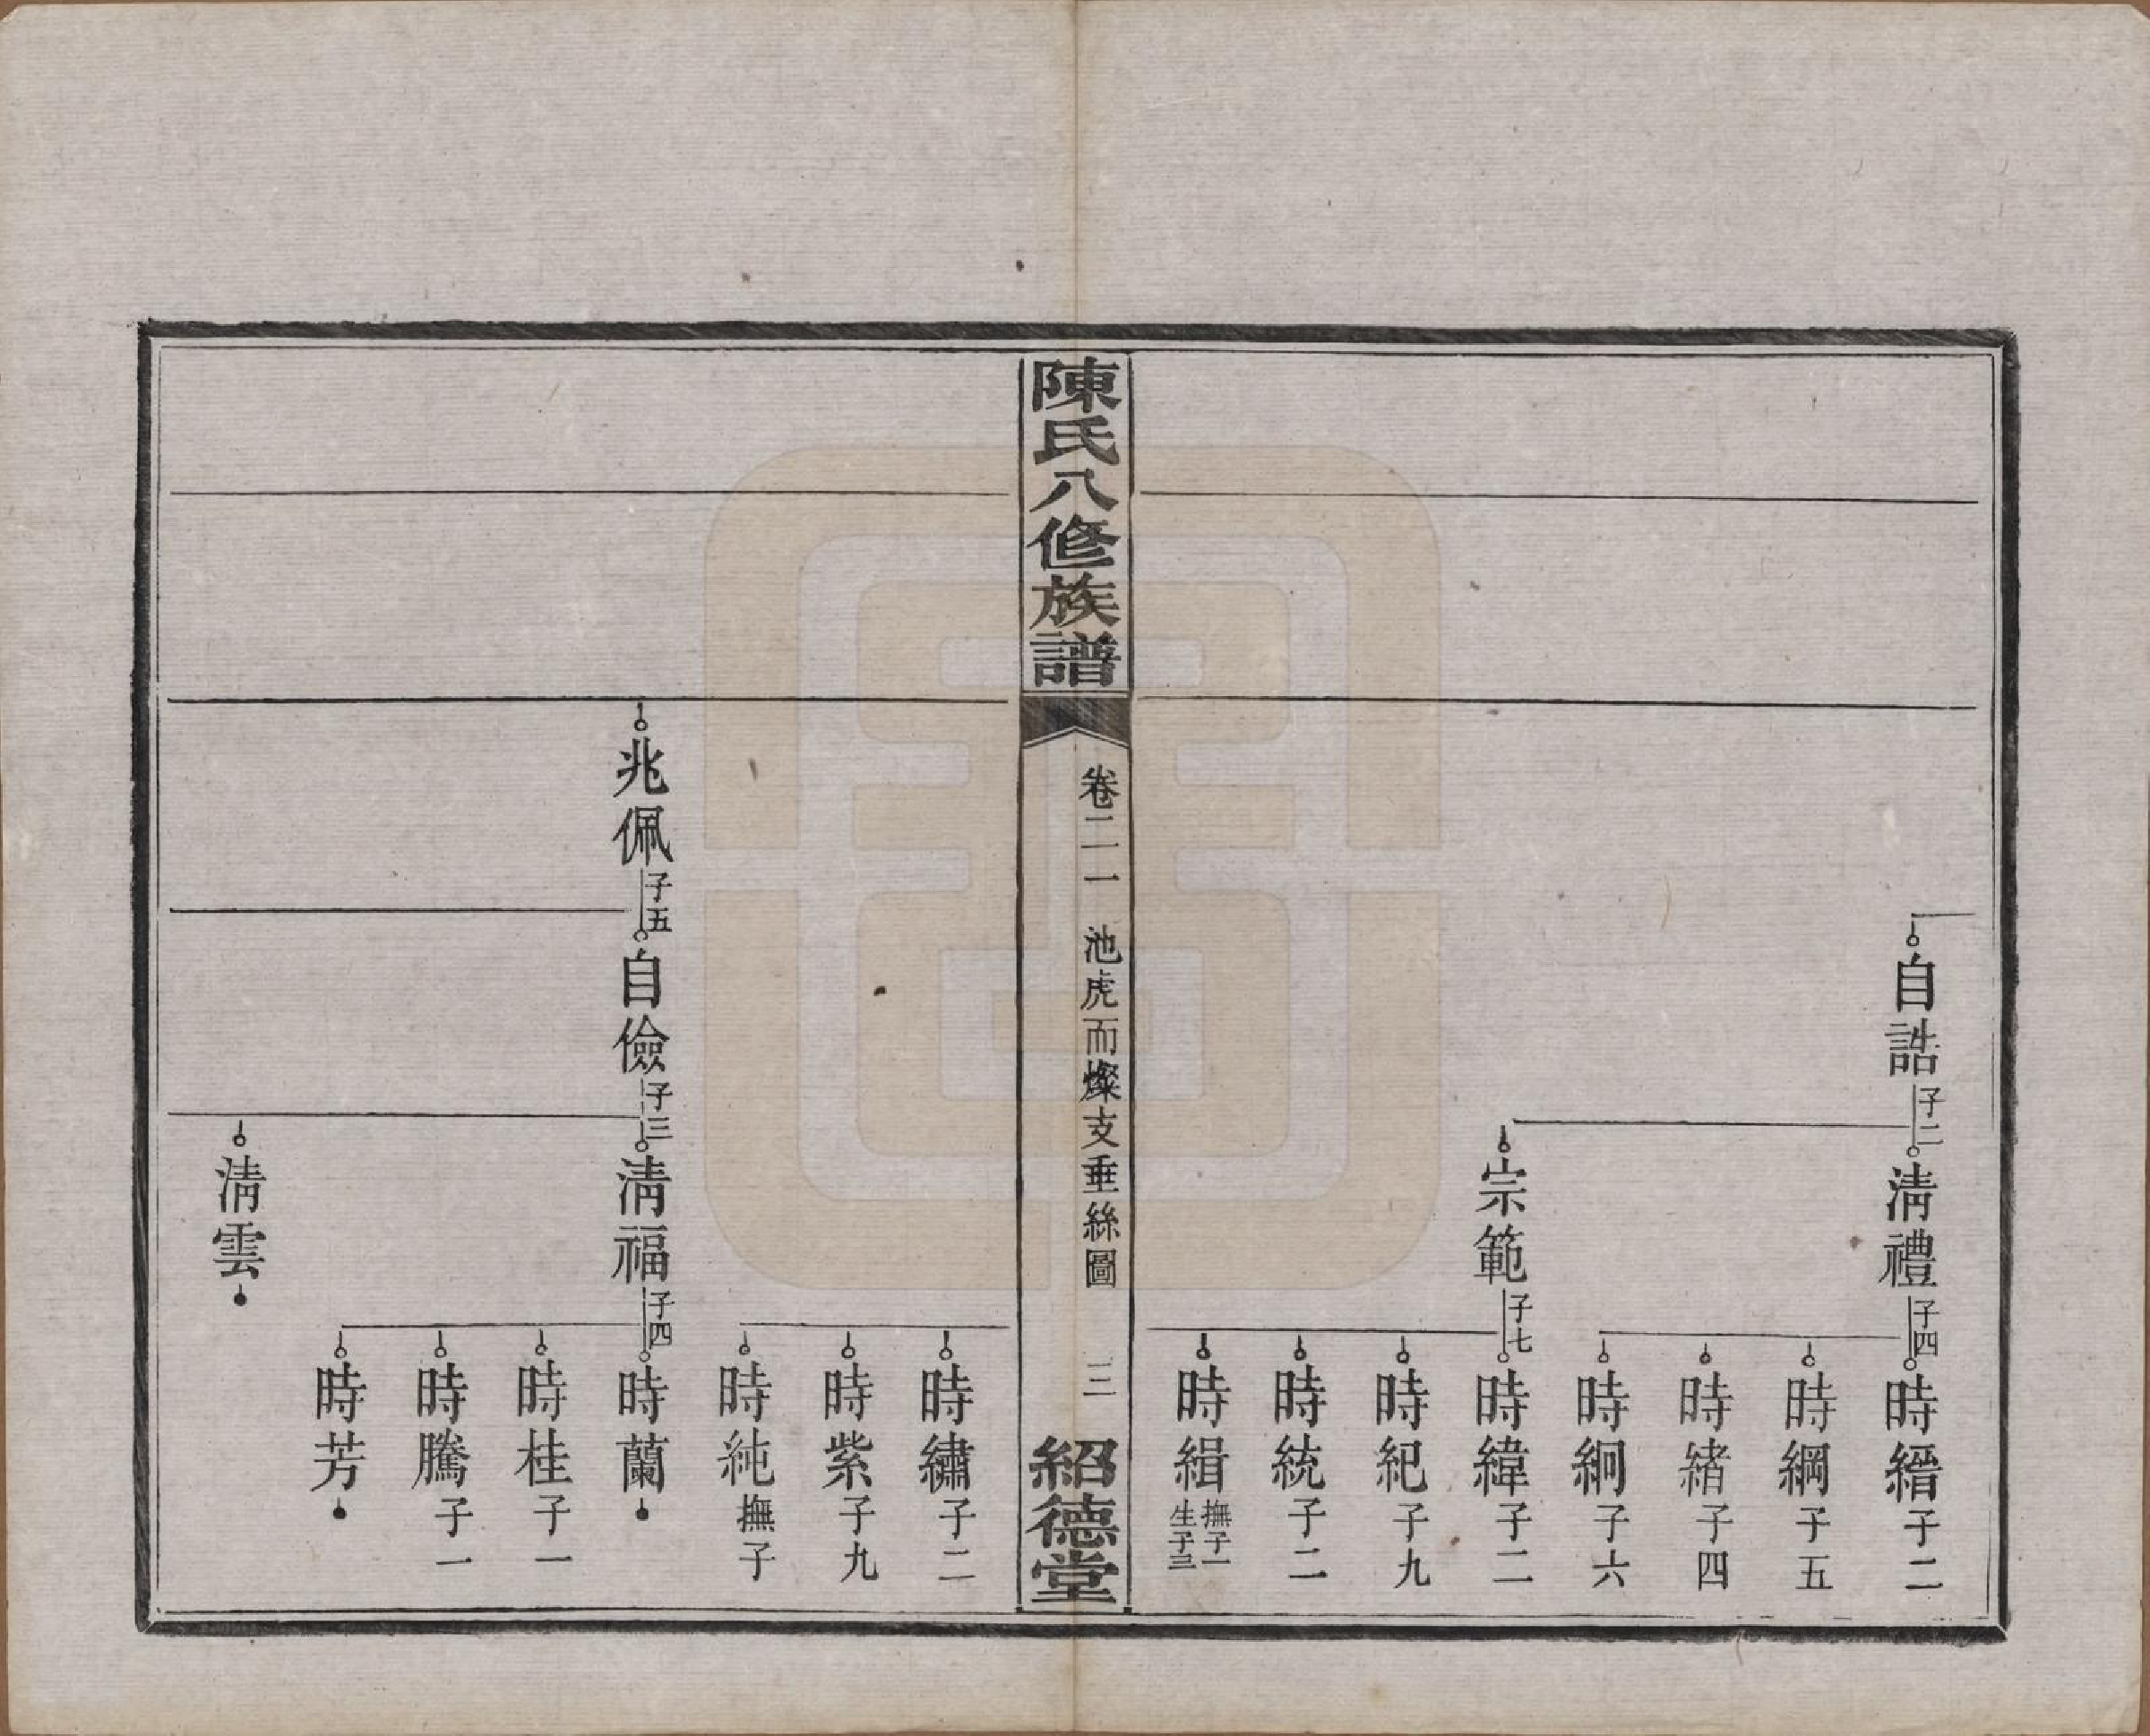 自誥 子二
淸禮 子四
時縉 子二
時綱 子五
時緒 子四
時絅 子六
宗範 子七
時緯 子二
時紀 子九
時統 子二
時緝 撫子一 生子三
陳氏八修族譜
卷二一 池虎而燦支垂絲圖 三
紹德堂
時繡 子二
時紫 子九
時純 撫子
兆佩 子五
自儉 子三
淸福 子四
時蘭
時桂 子一
時騰 子一
時芳
淸雲